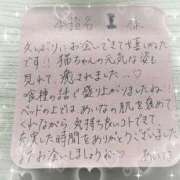 本指名 様
久しぶりにお会いできて嬉しかった
です!! 猫ちゃんの元気な姿も
見れて、癒されました…♡
喰種の話で盛り上がりましたね!
ベッドの上では あいなの肌を褒めて
くれながら 気持ち良いコトできて
充実した時間をありがとうございました
またお会いしましょうね
あいな